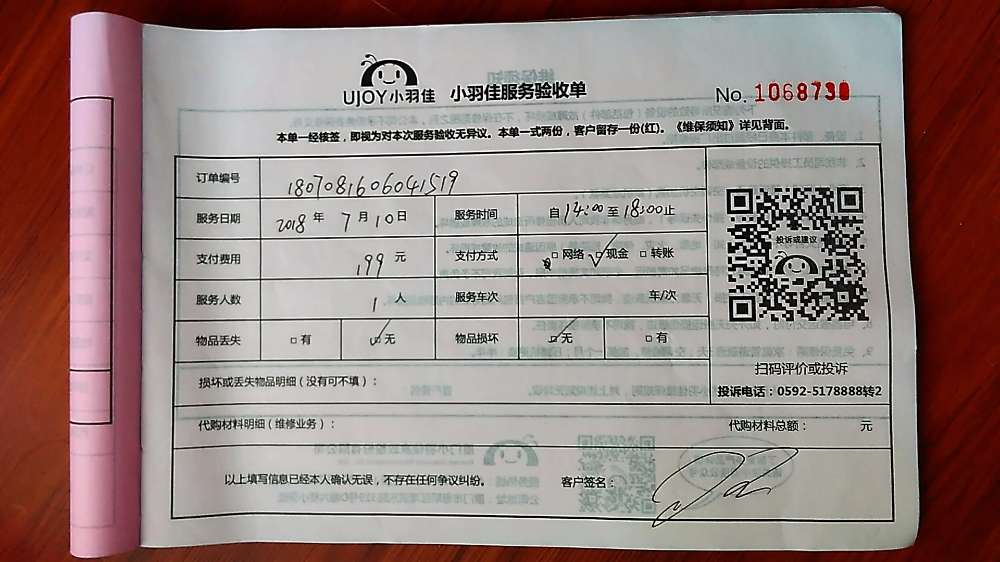 UJOY小羽佳 小羽佳服务验收单 No. 1068730
本单一经核签，即视为对本次服务验收无异议。本单一式两份，客户留存一份(红)。《维保须知》详见背面。
订单编号 1807081606041519
服务日期 2018 年 7 月 10 日 服务时间 自 14:00 至 18:00 止
支付费用 199 元 支付方式 □ 网络 □ 现金 □ 转账
服务人数 1 人 服务车次 车/次
物品丢失 □ 有 □ 无 物品损坏 □ 无 □ 有
投诉或建议
扫码评价或投诉
投诉电话：0592-5178888转2
损坏或丢失物品明细（没有可不填）：
代购材料明细（维修业务）： 代购材料总额： 元
以上填写信息已经本人确认无误，不存在任何争议纠纷。 客户签名：